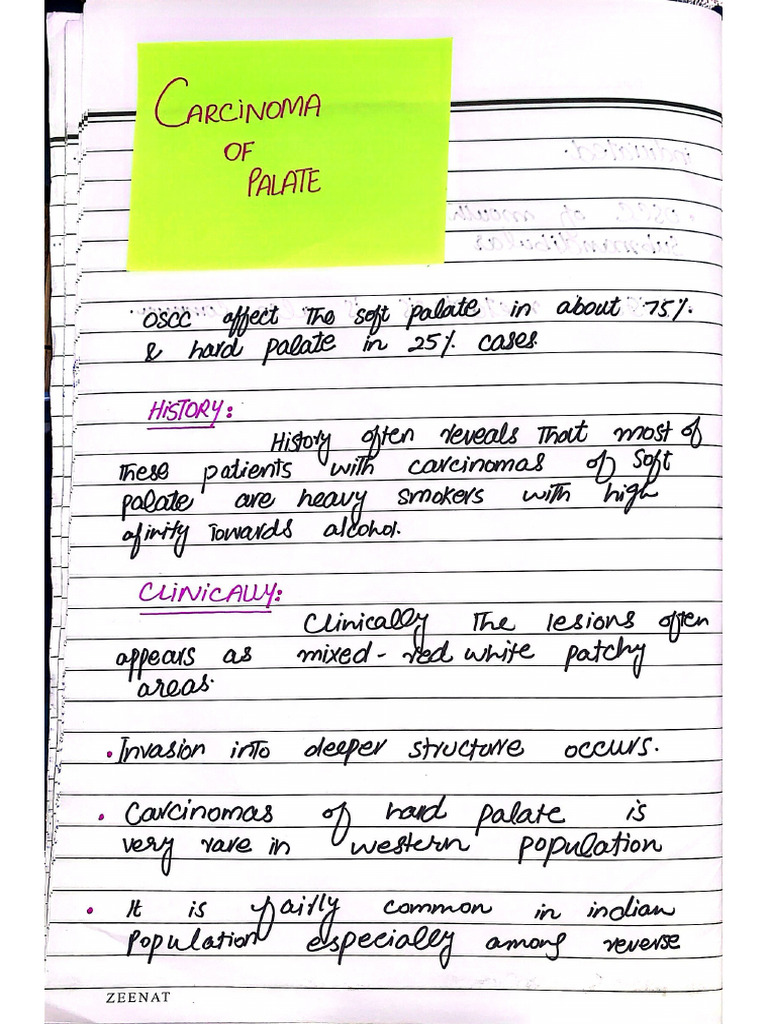 CARCINOMA
OF
PALATE
OSCC affect the soft palate in about 75%.
& hard palate in 25% cases.
HISTORY:
History often reveals that most of
these patients with carcinomas of soft
palate are heavy smokers with high
afinity towards alcohol.
CLINICALLY:
Clinically the lesions often
appears as mixed-red white patchy
areas.
• Invasion into deeper structure occurs.
• Carcinomas of hard palate is
very rare in western population
• It is fairly common in indian
population especially among reverse
ZEENAT